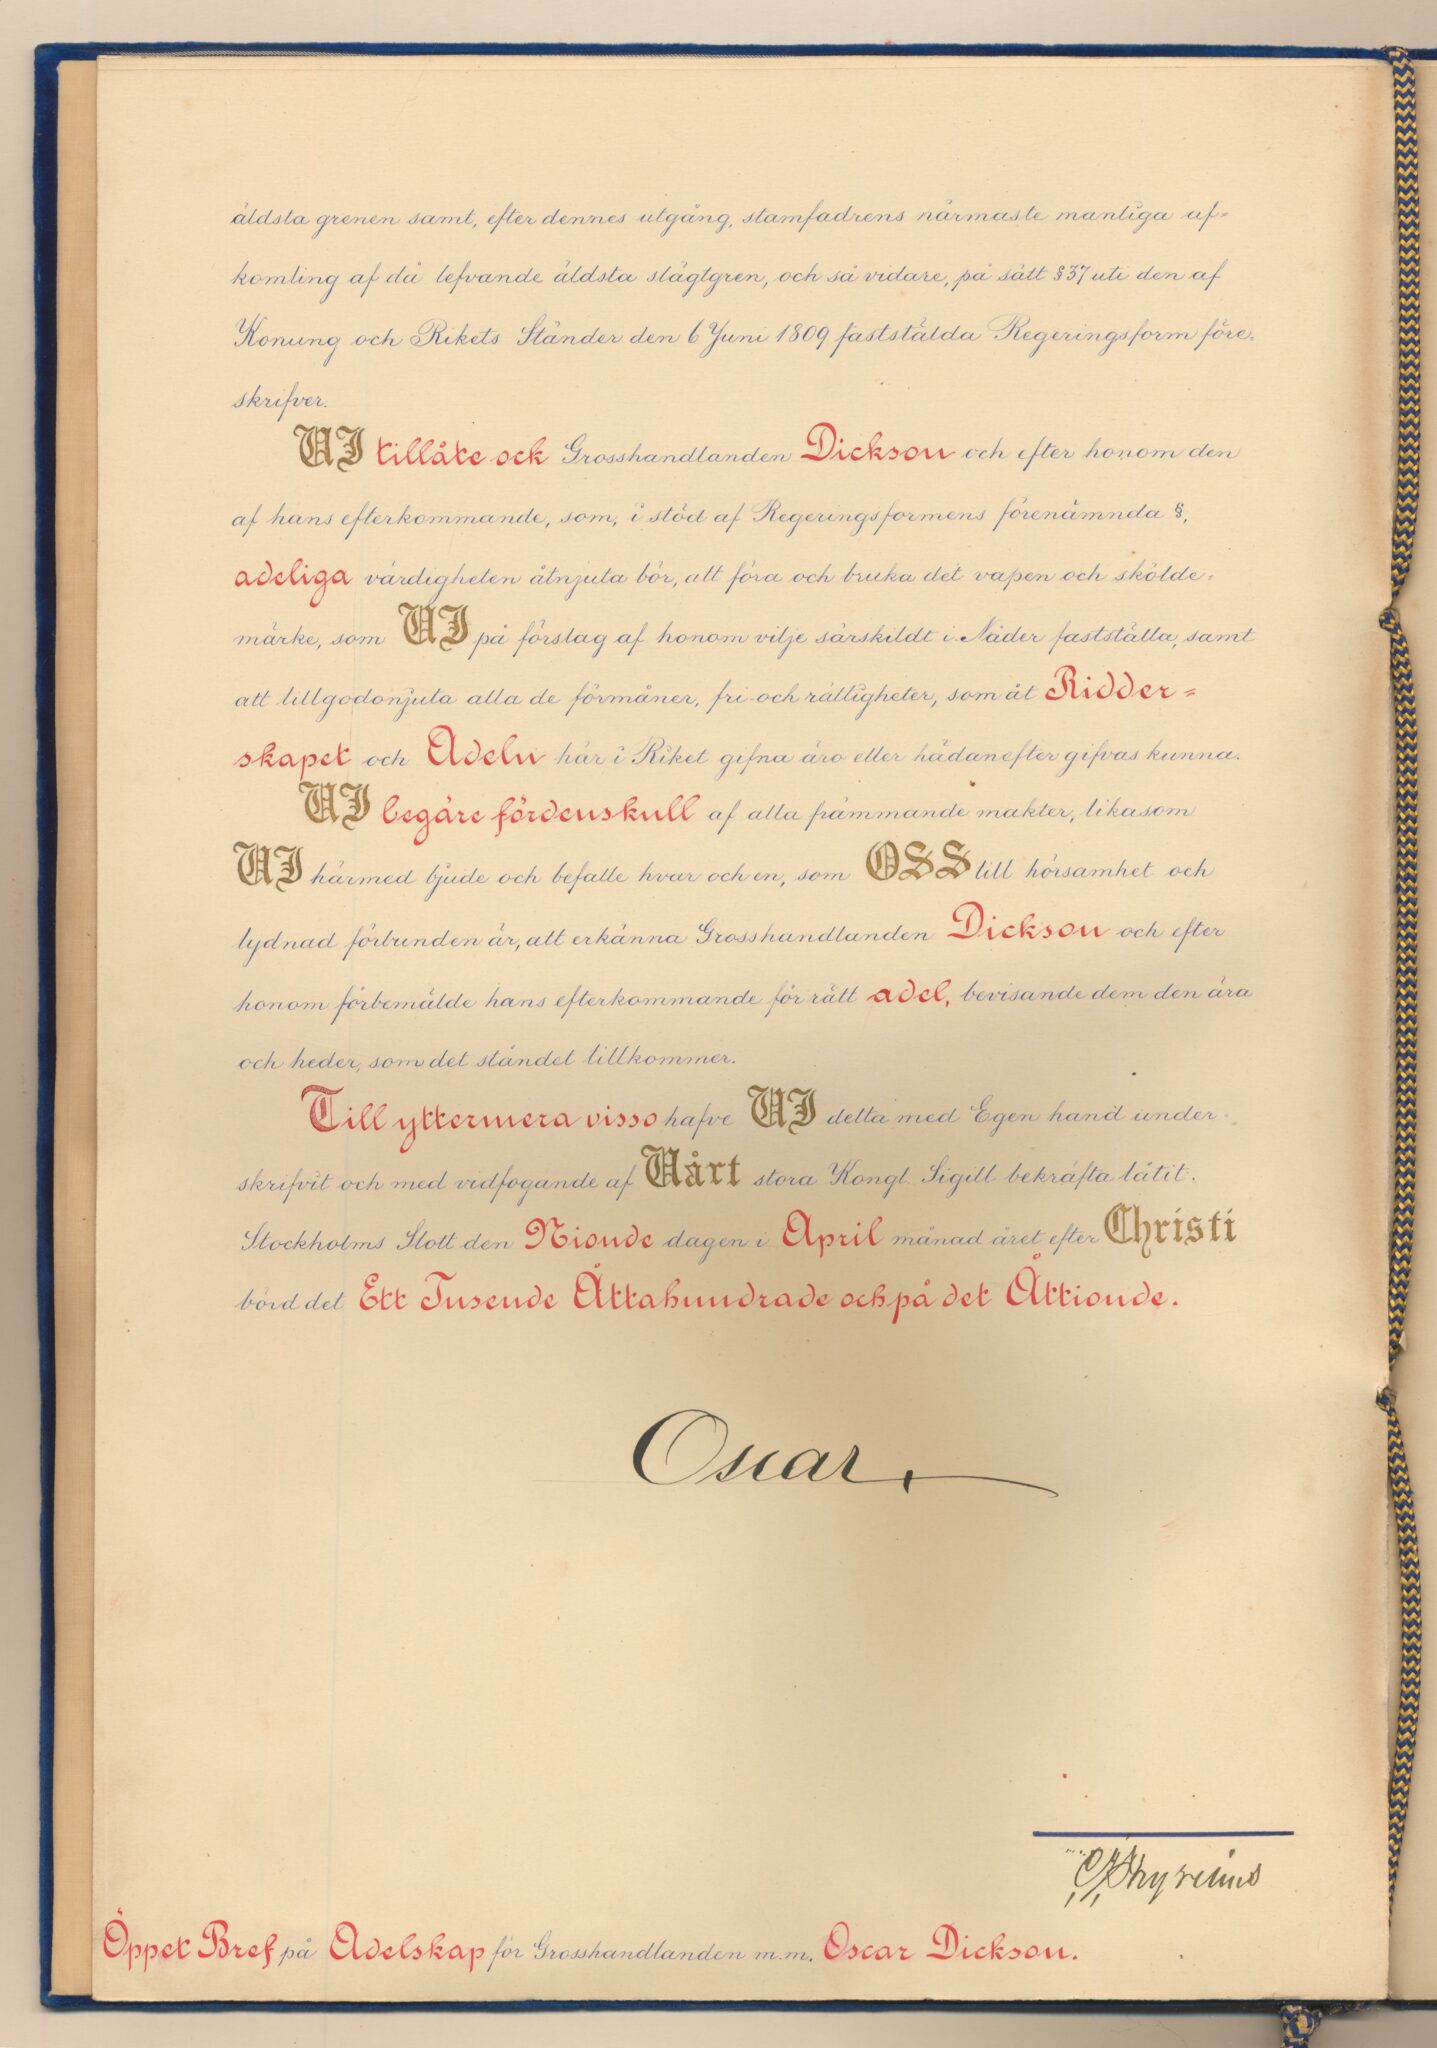 äldsta grenen samt, efter dennes utgång, stamfadrens närmaste manliga af-
komling af då lefvande äldsta slägtgren, och så vidare, på sätt § 37 uti den af
Konung och Rikets Ständer den 6 Juni 1809 faststälda Regeringsform före-
skrifver.
VI tillåte ock Grosshandlanden Dickson och efter honom den
af hans efterkommande, som, i stöd af Regeringsformens förenämnda §,
adeliga värdigheten åtnjuta bör, att föra och bruka det vapen och skölde-
märke, som VI på förslag af honom vilje särskildt i Nåder fastställa, samt
att tillgodonjuta alla de förmåner, fri- och rättigheter, som åt Ridder-
skapet och Adeln här i Riket gifna äro eller hädanefter gifvas kunna.
VI begäre fördenskull af alla främmande makter, likasom
VI härmed bjude och befalle hvar och en, som OSS till hörsamhet och
lydnad förbunden är, att erkänna Grosshandlanden Dickson och efter
honom förbemälde hans efterkommande för rätt adel, bevisande dem den ära
och heder, som det ståndet tillkommer.
Till yttermera visso hafve VI detta med Egen hand under-
skrifvit och med vidfogande af Vårt stora Kongl. Sigill bekräfta låtit.
Stockholms Slott den Nionde dagen i April månad året efter Christi
börd det Ett Tusende Åttahundrade och på det Åttionde.
Oscar
Öppet Bref på Adelskap för Grosshandlanden m.m. Oscar Dickson.